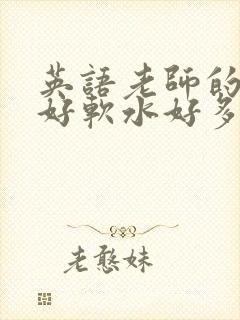 英語老師的
好軟水好多
老憨妹